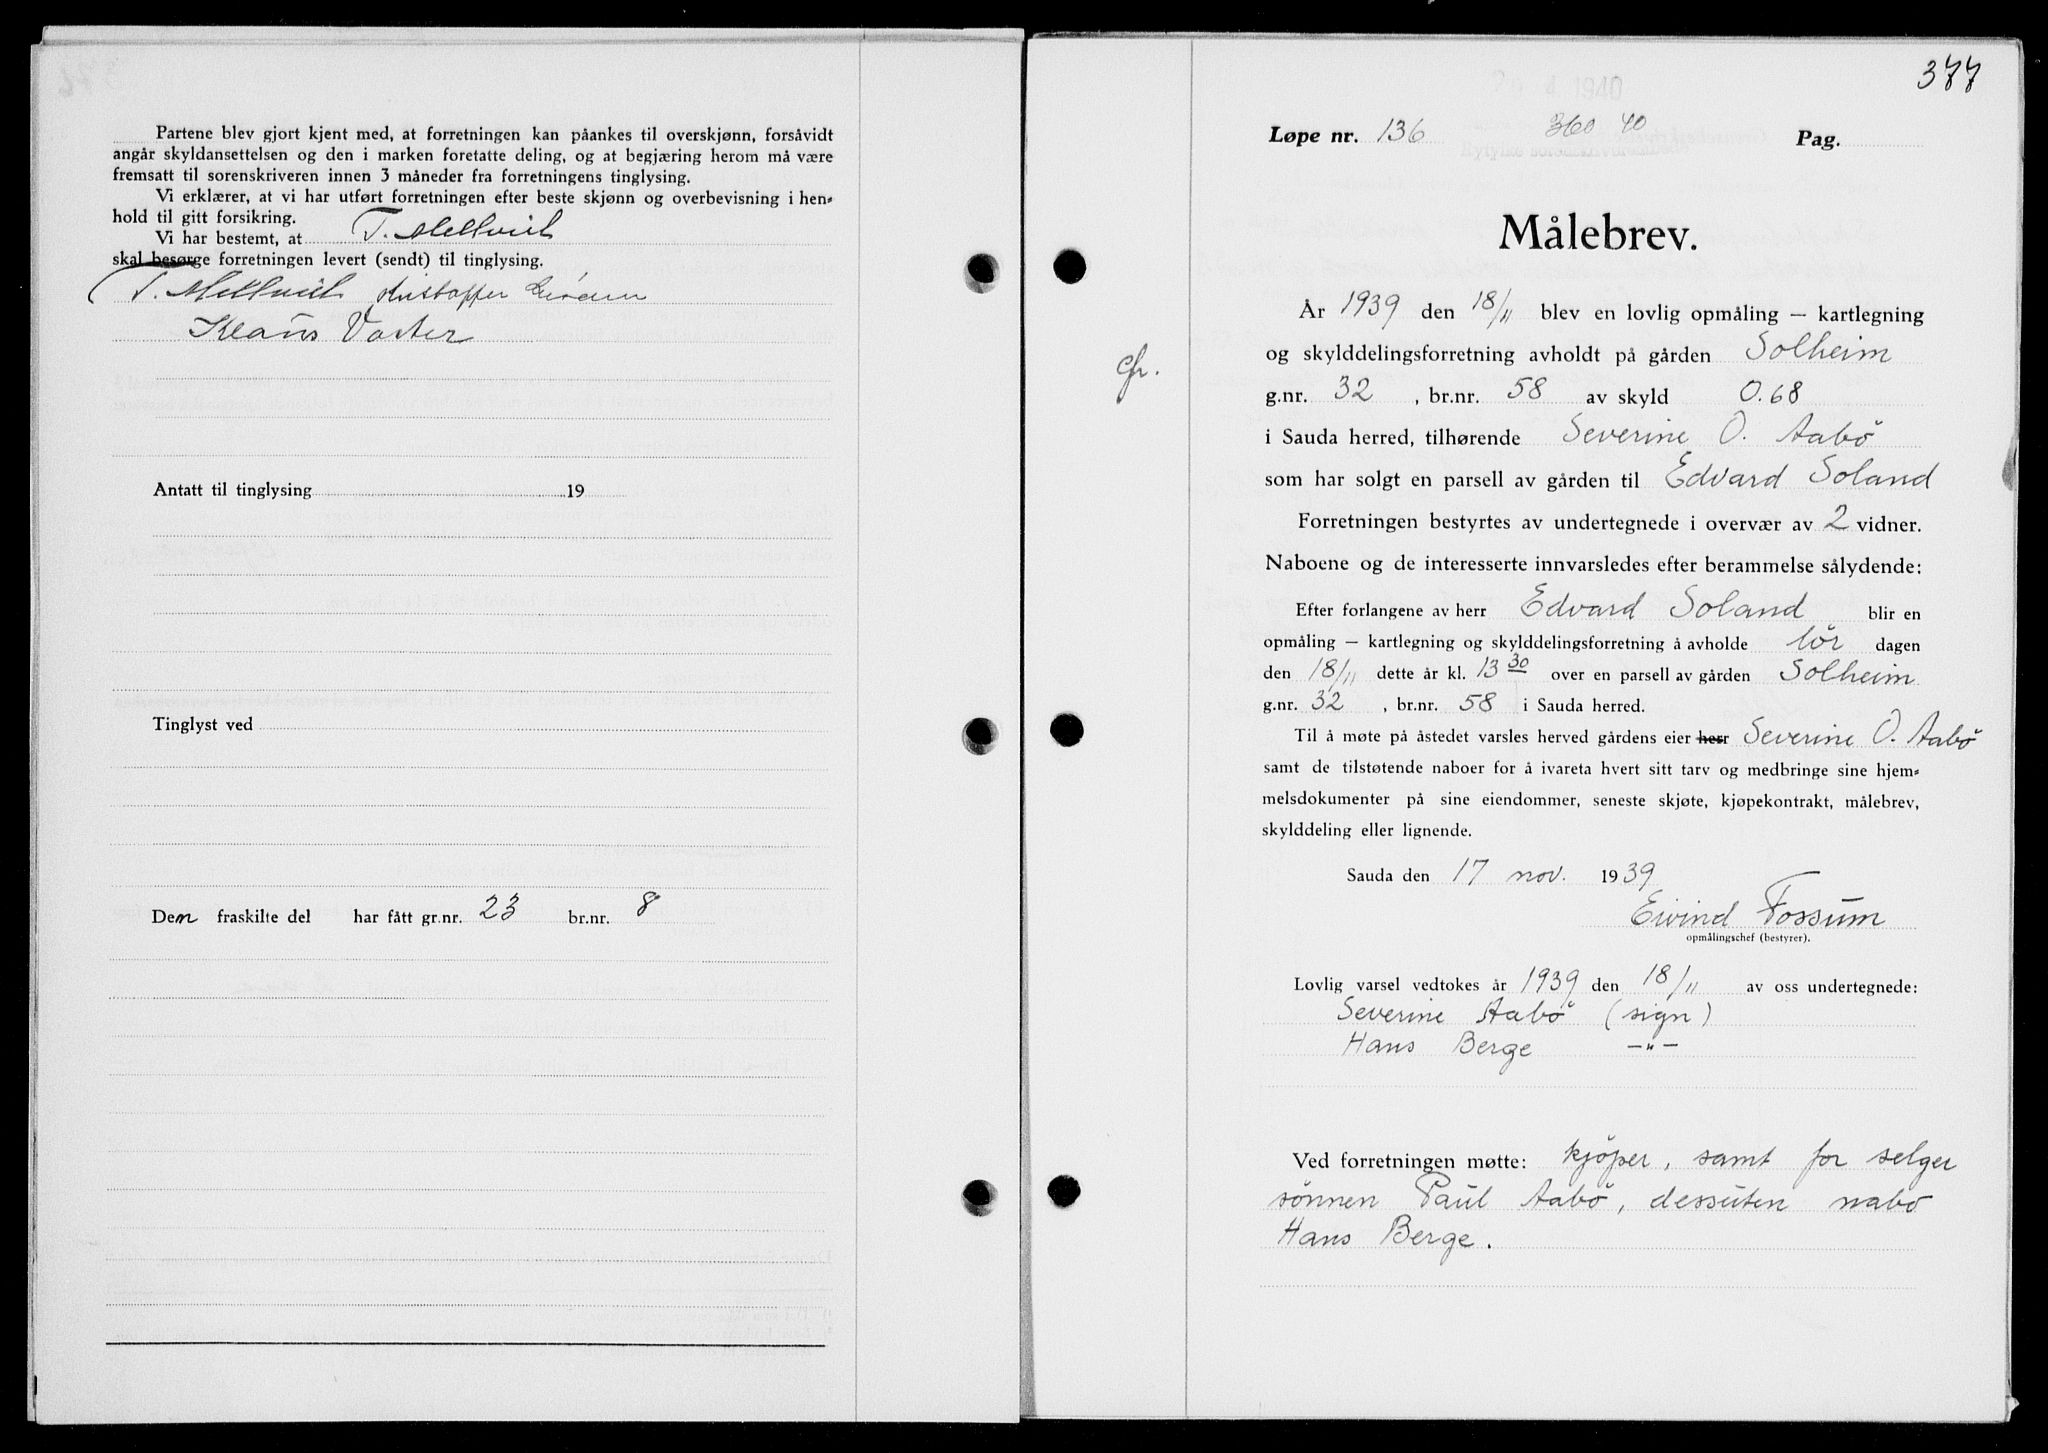 Partene blev gjort kjent med, at forretningen kan påankes til overskjønn, forsåvidt
angår skyldansettelsen og den i marken foretatte deling, og at begjæring herom må være
fremsatt til sorenskriveren innen 3 måneder fra forretningens tinglysing.
Vi erklærer, at vi har utført forretningen efter beste skjønn og overbevisning i hen=
hold til gitt forsikring.
Vi har bestemt, at T. Mellveit
skal besørge forretningen levert (sendt) til tinglysing.
T. Mellveit Kristoffer
Klaus Voster
Antatt til tinglysing 19
Tinglyst ved
Den fraskilte del har fått gr.nr. 23 br.nr. 8
377
1940
Løpe nr. 136 360 40 Pag.
Målebrev.
År 1939 den 18/11 blev en lovlig opmåling – kartlegning
og skylddelingsforretning avholdt på gården Solheim
g.nr. 32, br.nr. 58 av skyld 0.68
cfr.
i Sauda herred, tilhørende Severine O. Aabö
som har solgt en parsell av gården til Edvard Soland
Forretningen bestyrtes av undertegnede i overvær av 2 vidner.
Naboene og de interesserte innvarsledes efter berammelse sålydende:
Efter forlangene av herr Edvard Soland blir en
opmåling – kartlegning og skylddelingsforretning å avholde lör dagen
den 18/11 dette år kl. 13 30 over en parsell av gården Solheim
g.nr. 32, br.nr. 58 i Sauda herred.
Til å møte på åstedet varsles herved gårdens eier herr Severine O. Aabö
samt de tilstøtende naboer for å ivareta hvert sitt tarv og medbringe sine hjem=
melsdokumenter på sine eiendommer, seneste skjøte, kjøpekontrakt, målebrev,
skylddeling eller lignende.
Sauda den 17 nov. 1939
Eivind Fossum
opmålingschef (bestyrer).
Lovlig varsel vedtokes år 1939 den 18/11 av oss undertegnede:
Severine Aabö (sign)
Hans Berge –"–
Ved forretningen møtte: kjöper, samt for selger
sönnen Paul Aabö, dessuten nabo
Hans Berge.